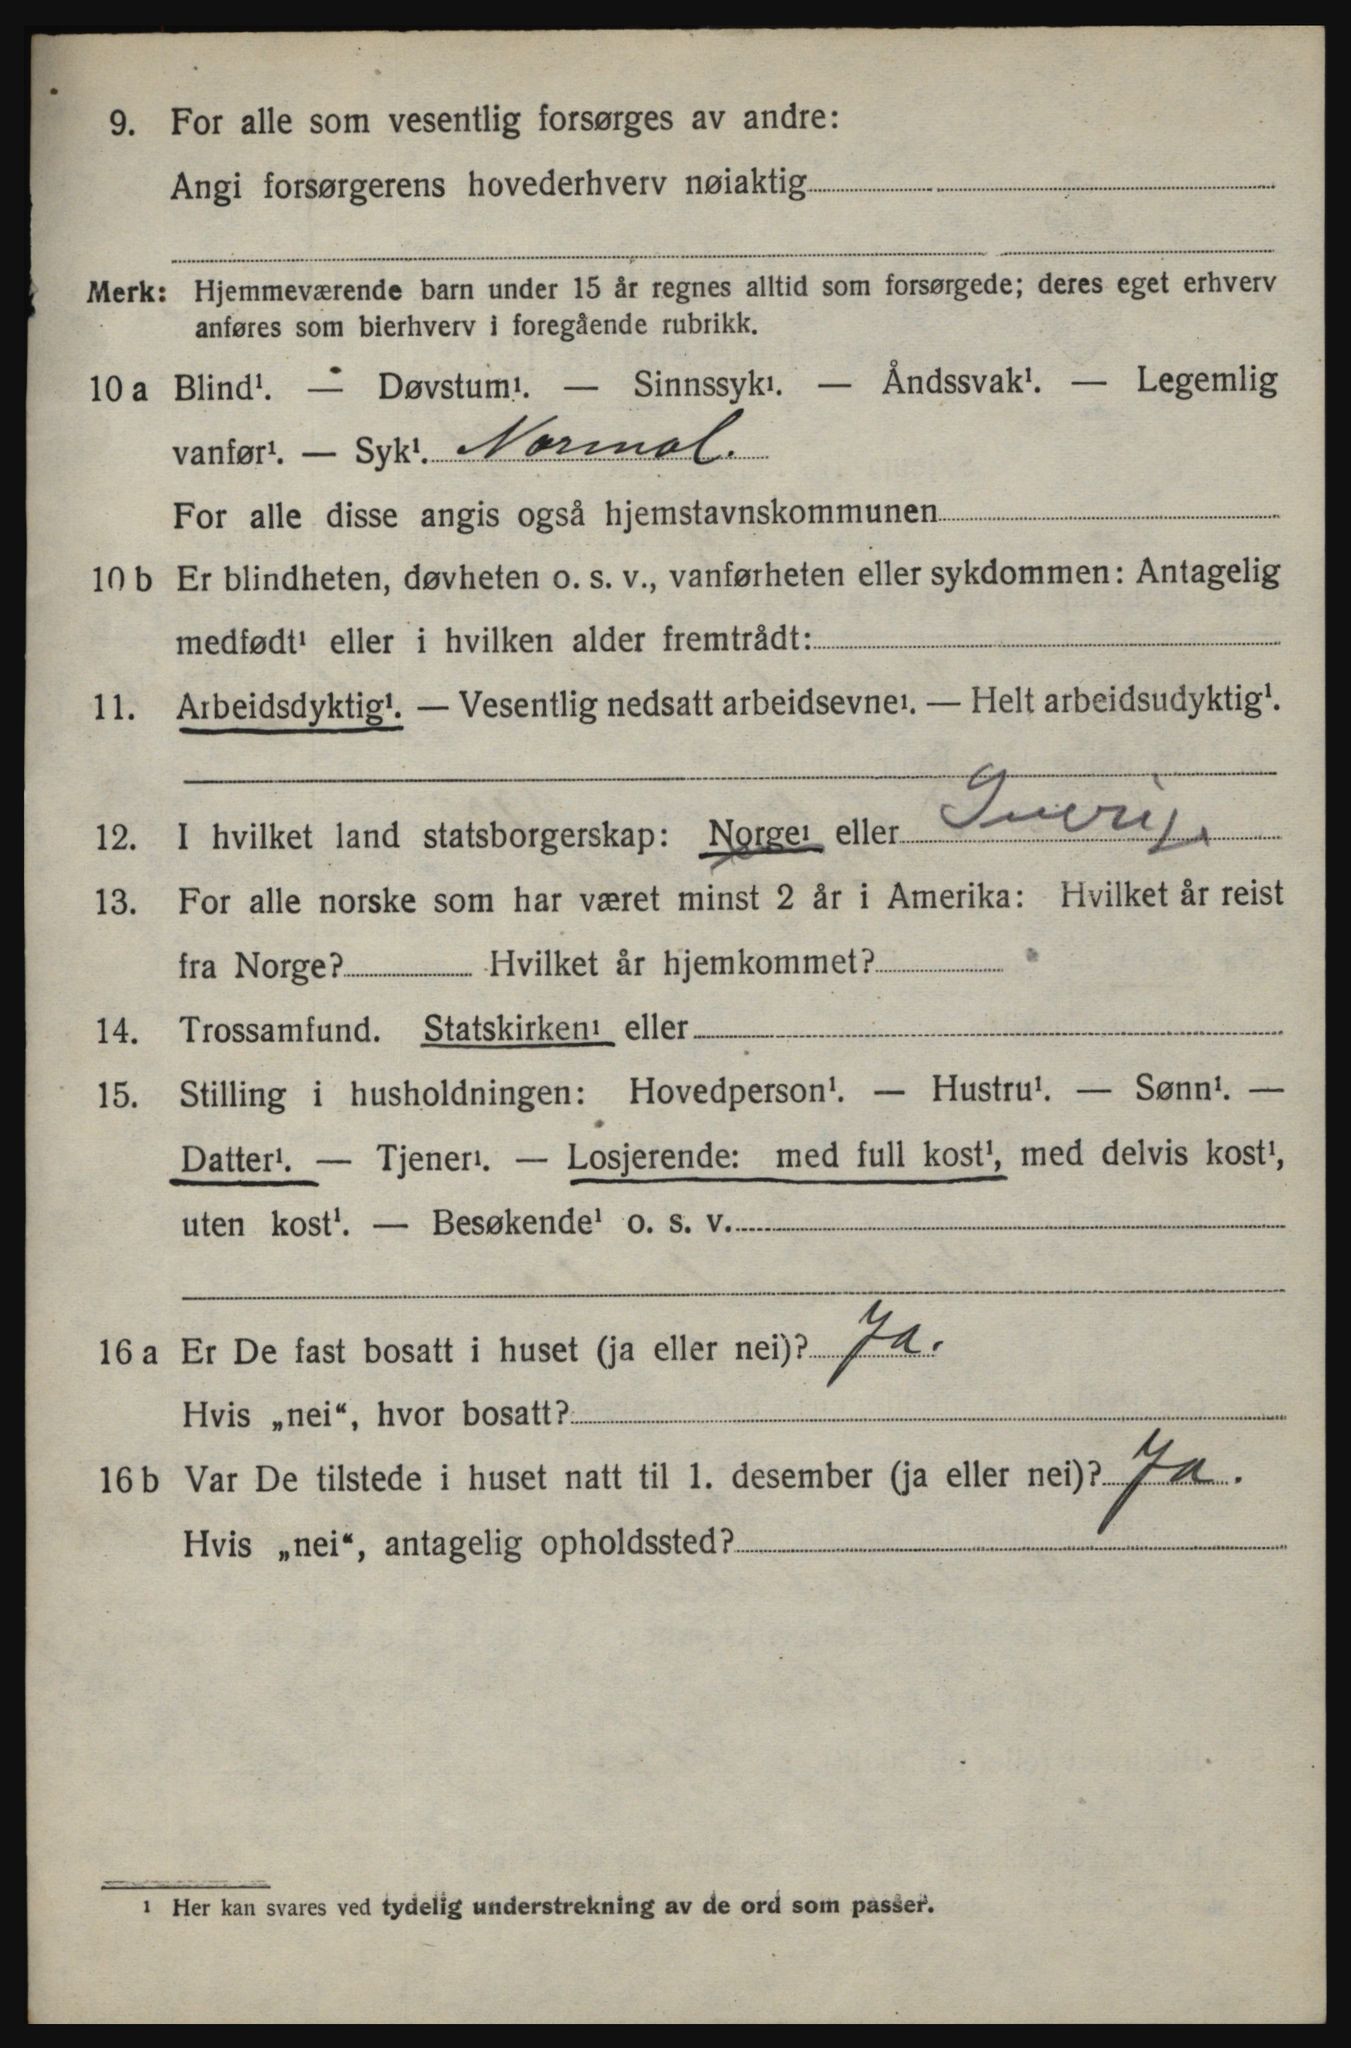 9. For alle som vesentlig forsørges av andre:
Angi forsørgerens hovederhverv nøiaktig
Merk: Hjemmeværende barn under 15 år regnes alltid som forsørgede; deres eget erhverv
anføres som bierhverv i foregående rubrikk.
10 a Blind¹. — Døvstum¹. — Sinnssyk¹. — Åndssvak¹. — Legemlig
vanfør¹. — Syk¹. Normal.
For alle disse angis også hjemstavnskommunen
10 b Er blindheten, døvheten o. s. v., vanførheten eller sykdommen: Antagelig
medfødt¹ eller i hvilken alder fremtrådt:
11. Arbeidsdyktig¹. — Vesentlig nedsatt arbeidsevne¹. — Helt arbeidsudyktig¹.
12. I hvilket land statsborgerskap: Norge¹ eller Sverig.
13. For alle norske som har været minst 2 år i Amerika: Hvilket år reist
fra Norge? Hvilket år hjemkommet?
14. Trossamfund. Statskirken¹ eller
15. Stilling i husholdningen: Hovedperson¹. — Hustru¹. — Sønn¹. —
Datter¹. — Tjener¹. — Losjerende: med full kost¹, med delvis kost¹,
uten kost¹. — Besøkende¹ o. s. v.
16 a Er De fast bosatt i huset (ja eller nei)? Ja.
Hvis „nei“, hvor bosatt?
16 b Var De tilstede i huset natt til 1. desember (ja eller nei)? Ja.
Hvis „nei“, antagelig opholdssted?
¹ Her kan svares ved tydelig understrekning av de ord som passer.